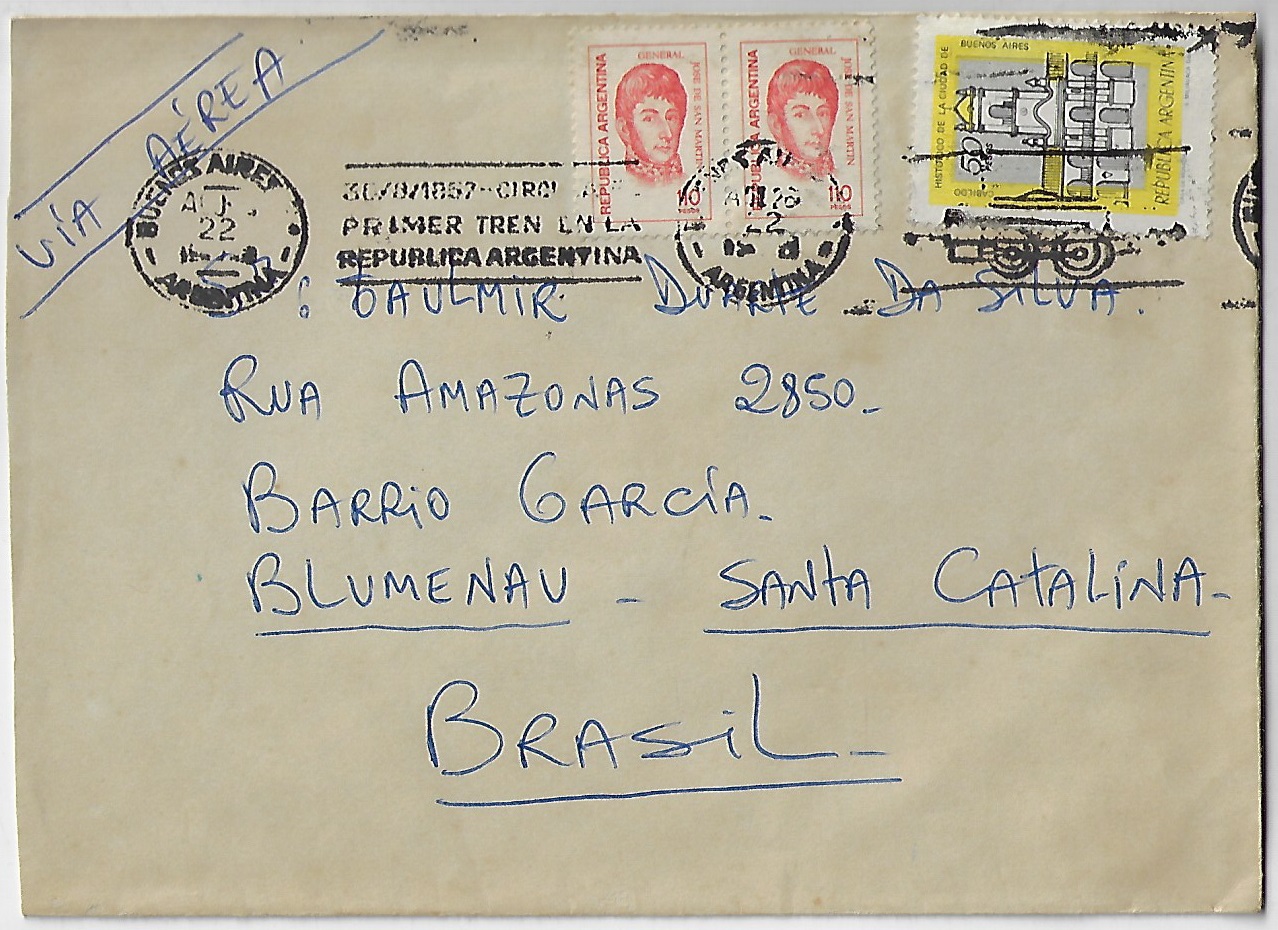 VÍA AÉREA
REPUBLICA ARGENTINA
GENERAL
JOSE DE SAN MARTIN
110
PESOS
REPUBLICA ARGENTINA
GENERAL
JOSE DE SAN MARTIN
110
PESOS
HISTORICO DE LA CIUDAD DE BUENOS AIRES
CABILDO
REPUBLICA ARGENTINA
BUENOS AIRES
22
ARGENTINA
30/8/1857-
PRIMER TREN EN LA
REPUBLICA ARGENTINA
22
ARGENTINA
DUARTE DA SILVA.
RUA AMAZONAS 2850.
BARRIO GARCÍA.
BLUMENAU - SANTA CATALINA.
BRASIL.